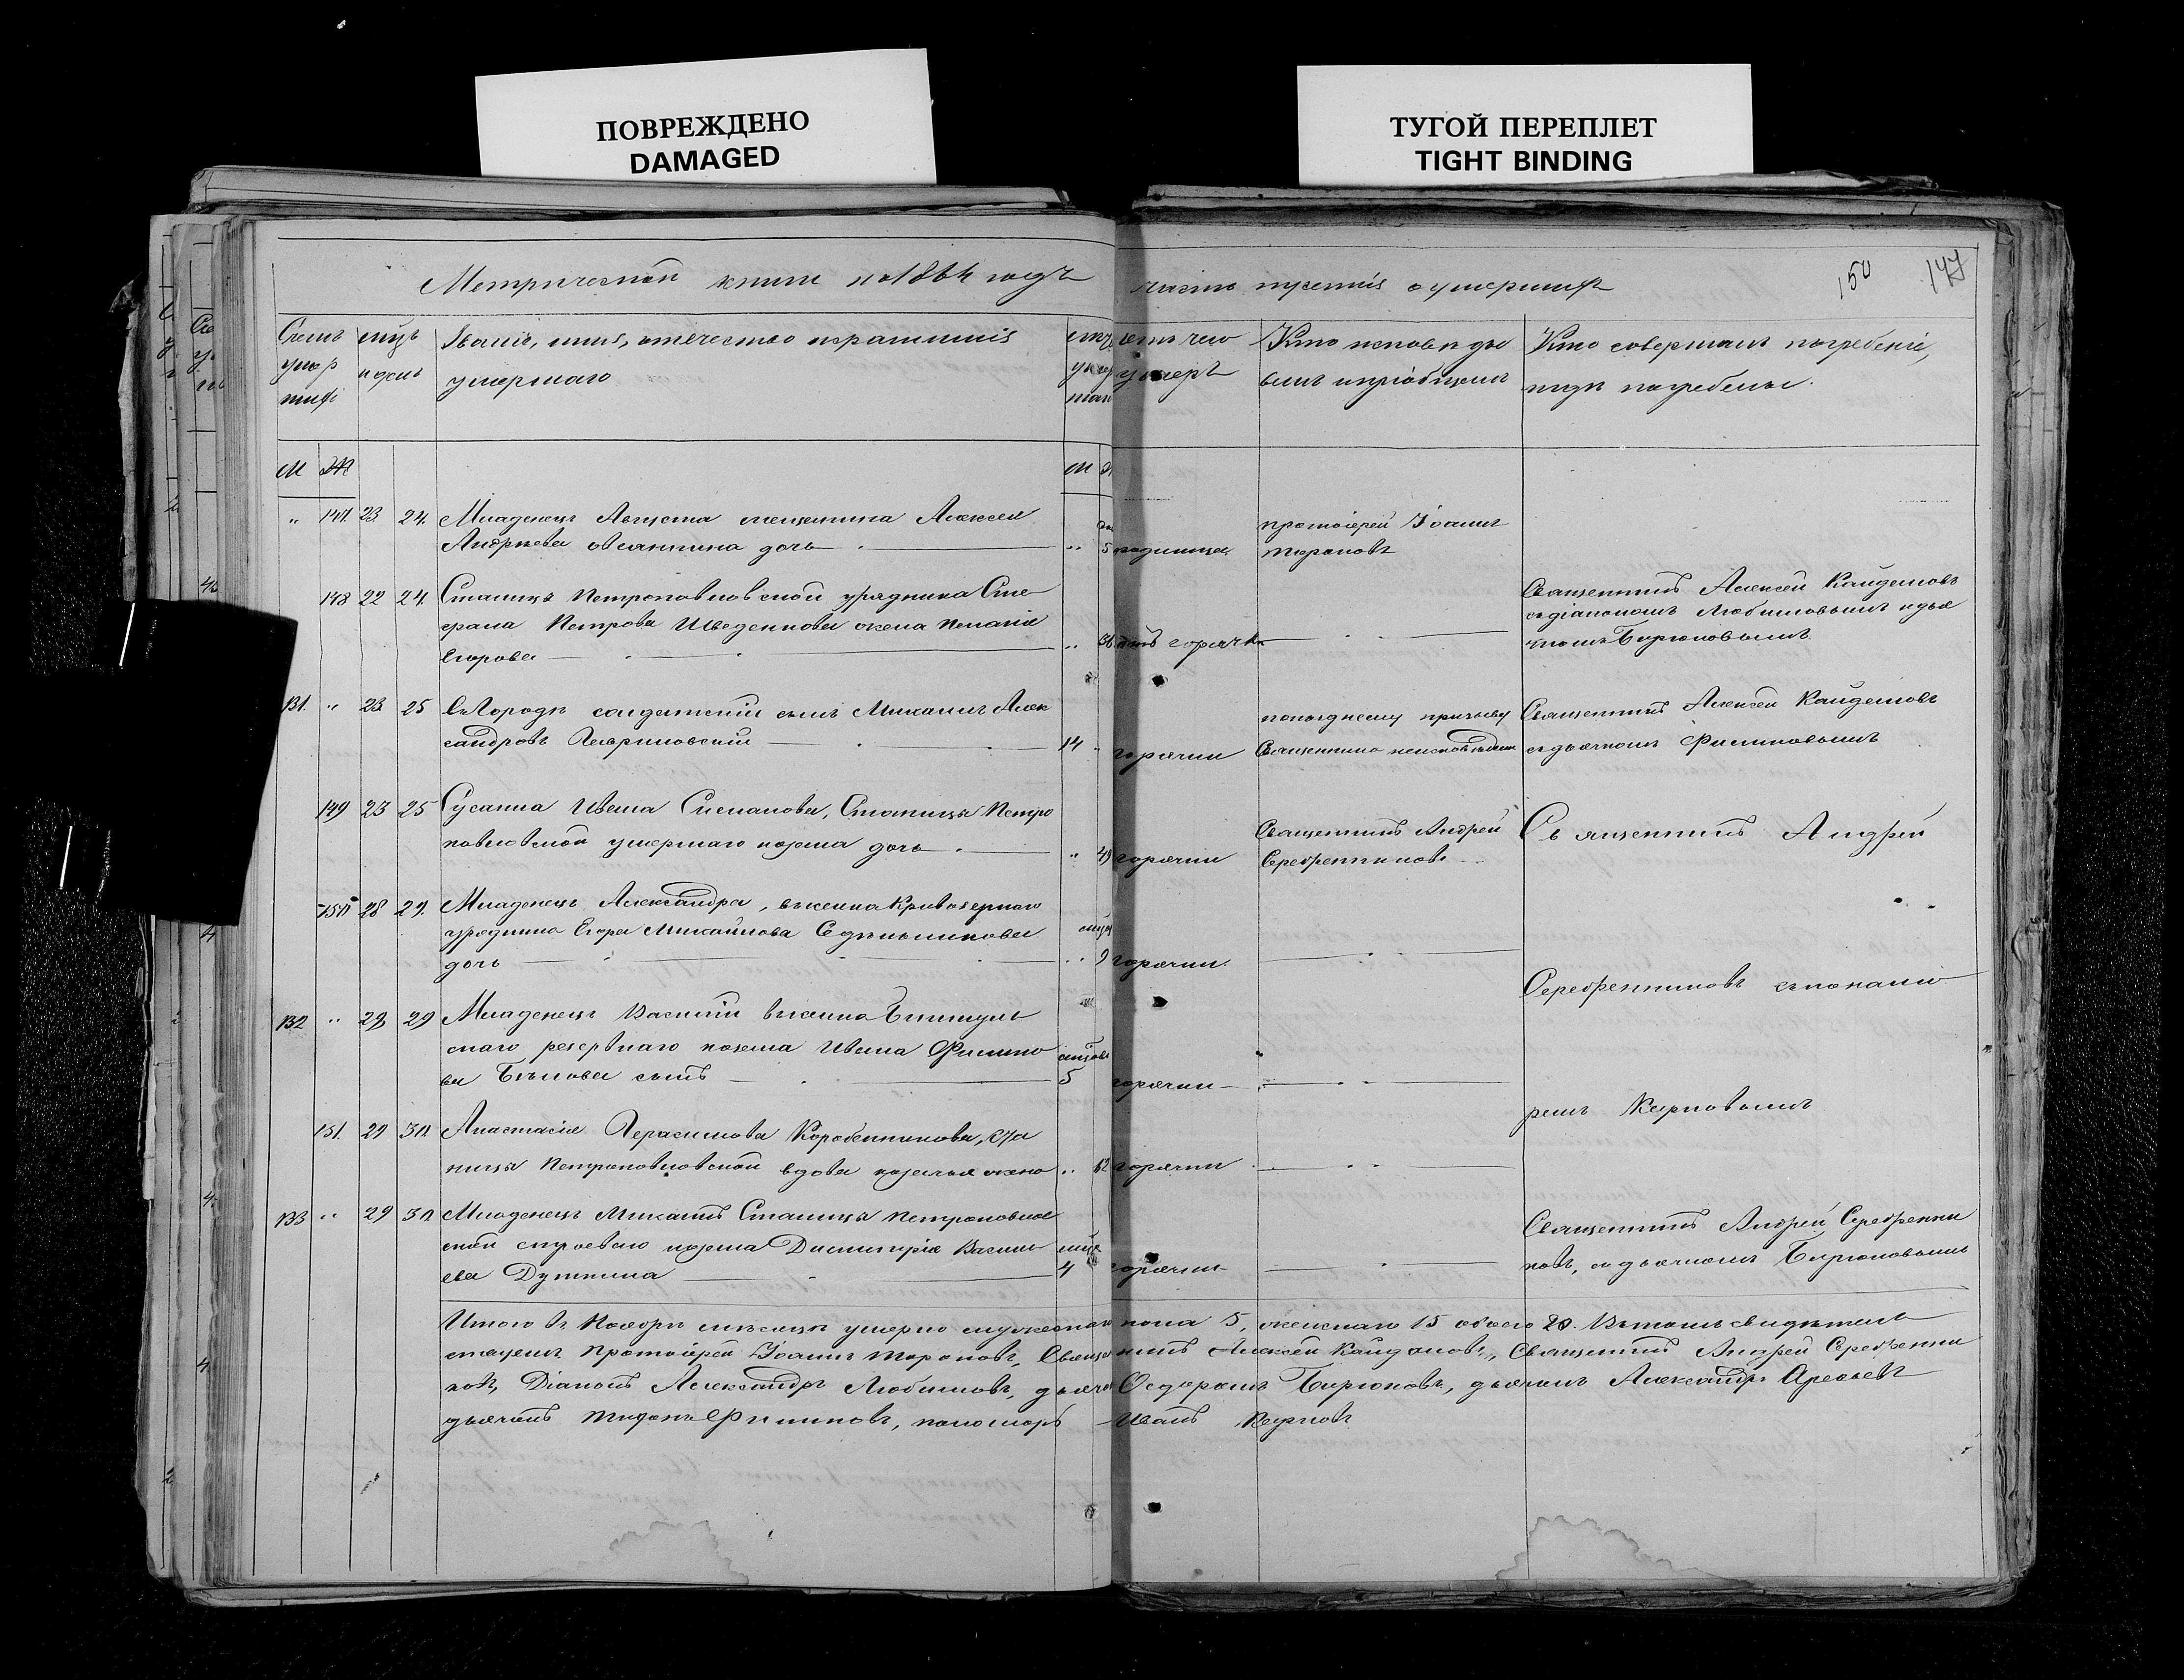 ПОВРЕЖДЕНО
DAMAGED
ТУГОЙ ПЕРЕПЛЕТ
TIGHT BINDING
Метрической книги на 1864 годъ
часть третія о умершихъ
150
147
Званіе, имя, отчество и фамилія
умершаго
отъ чего
умеръ
Кто исповѣды
валъ и пріобщалъ
Кто совершалъ погребеніе,
и гдѣ погребены.
М
М
" 147. 23 24. Младенецъ Августа мещанина Алексея
Андреева Овсянкина дочь " 5 родимца
протоіерей Іоаннъ
Тороповъ
148 22 24. Станицы Петропавловской урядника Сте
фана Петрова Шведенкова жена Пелагія
Егорова " 36 горячк
Священникъ Алексей Кайдаловъ
съ діакономъ Любимовымъ и дья
чкомъ Бирюковымъ
131. " 23 25 Солдатскій сынъ Михаилъ Алек
сандровъ Гавриловскій 14 " горячки
по позднему призыву
Священника неисповѣданъ
Священникъ Алексей Кайдаловъ
съ дьячкомъ Филиповымъ
149 23 25 Сусанна Ивана Степанова, Станицы Петро
павловской умершаго казака дочь " 49 горячки
Священникъ Андрей
Серебренниковъ
Священникъ Андрей
150 28 29. Младенецъ Александра, выселка Кривозернаго
урядника Егора Михайлова Седельникова
дочь " 9 горячки
Серебренниковъ съ понама
132 " 28 29 Младенецъ Василій выселка Бишкуль
скаго резервнаго казака Ивана Филипо
ва Бѣлова сынъ 5 горячки
ремъ Карповымъ
151. 29 30. Анастасія Герасимова Коробейникова, Ста
ницы Петропавловской вдова казачья жена " 62 горячки
133 " 29 30. Младенецъ Михаилъ Станицы Петропавлов
ской строеваго казака Димитрія Василь
ева Дуткина 4 горячки
Священникъ Андрей Серебренни
ковъ, съ дьячкомъ Бирюковымъ
Итого въ Ноябрѣ мѣсяцѣ умерло мужескаго пола 5, женскаго 15 обоего 20. Въ томъ свидѣтель
ствуемъ Протоіерей Іоаннъ Тороповъ, Священникъ Алексей Кайдаловъ, Священникъ Андрей Серебренни
ковъ, Діаконъ Александръ Любимовъ, дьячекъ Ѳедоръ Бирюковъ, дьячекъ Александръ Арефьевъ
дьячекъ Тихонъ Филиповъ, пономарь Иванъ Карповъ